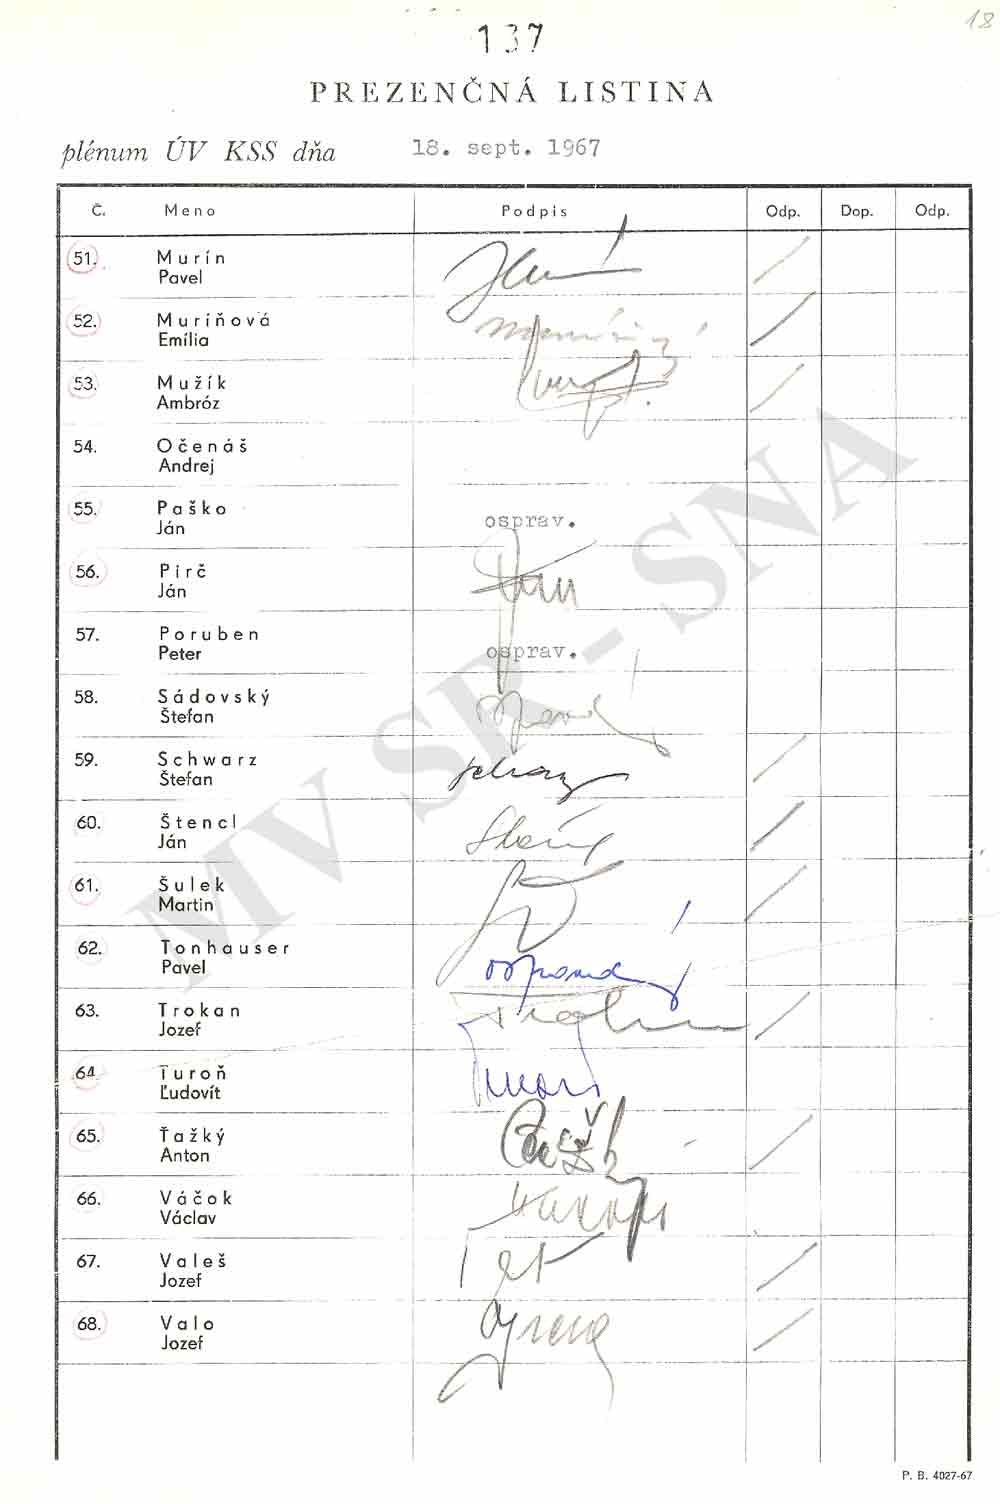 18
137
PREZENČNÁ LISTINA
plénum ÚV KSS dňa 18. sept. 1967
Č. Meno Podpis Odp. Dop. Odp.
51. Murín
Pavel
52. Muríňová
Emília
53. Mužík
Ambróz
54. Očenáš
Andrej
55. Paško
Ján osprav.
56. Pirč
Ján
57. Poruben
Peter osprav.
58. Sádovský
Štefan
59. Schwarz
Štefan
60. Štencl
Ján
61. Šulek
Martin
62. Tonhauser
Pavel
63. Trokan
Jozef
64. Turoň
Ľudovít
65. Ťažký
Anton
66. Váčok
Václav
67. Valeš
Jozef
68. Valo
Jozef
MV SR - SNA
P. B. 4027-67